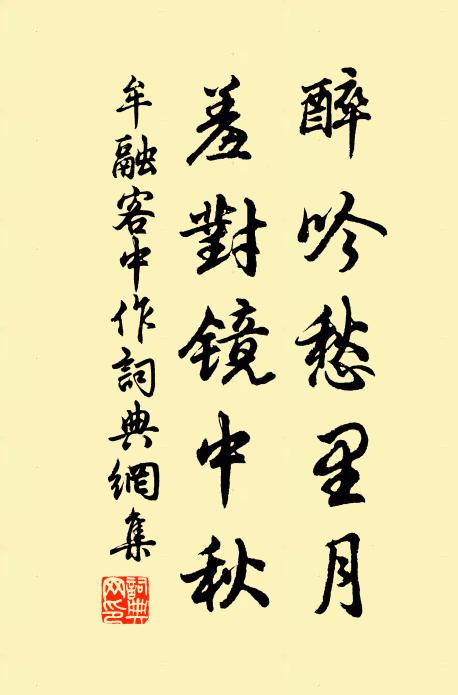 醉吟愁里月
羞對镜中秋
牟融客中作詞典網集
詞典網印